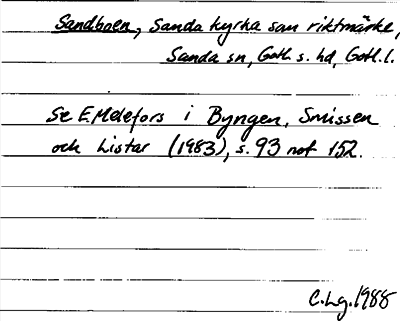 Sandboen, Sanda kyrka som riktmärke,
Sanda sn, Gotl. s. hd, Gotl. l.
Se E. Melefors i Byngen, Smissen
och Listar (1983), s. 93 not 152.
C. Lg. 1988